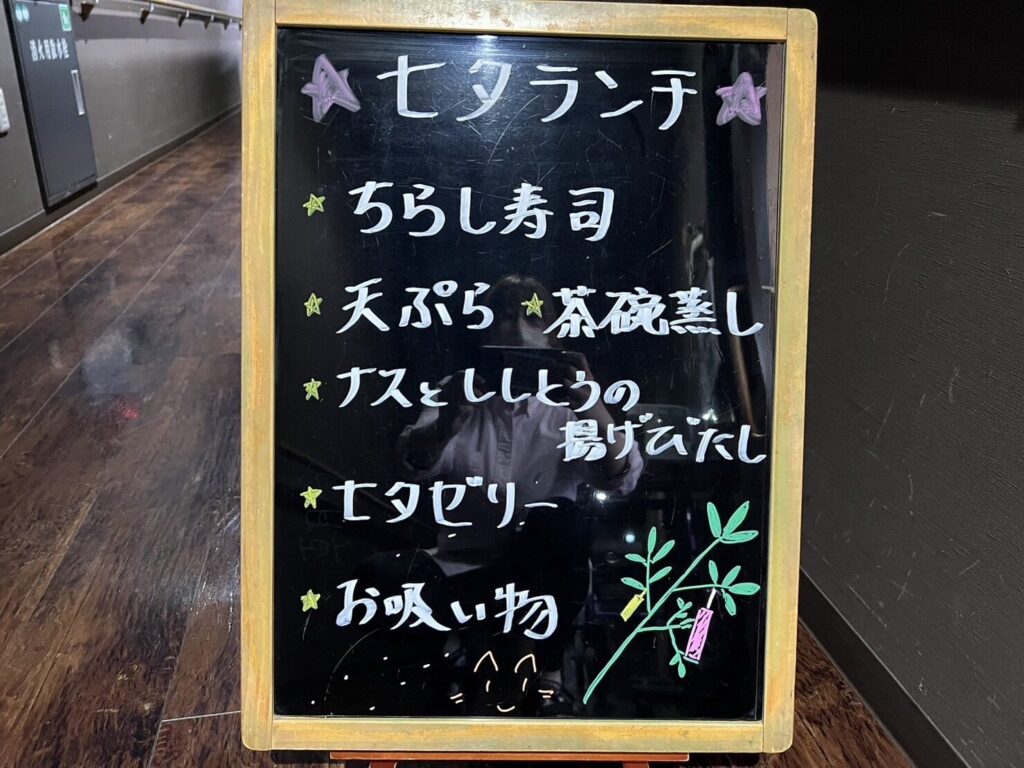 消火用散水栓
☆ 七夕ランチ ☆
☆ ちらし寿司
☆ 天ぷら ☆ 茶碗蒸し
☆ ナスとししとうの
揚げびたし
☆ 七夕ゼリー
☆ お吸い物